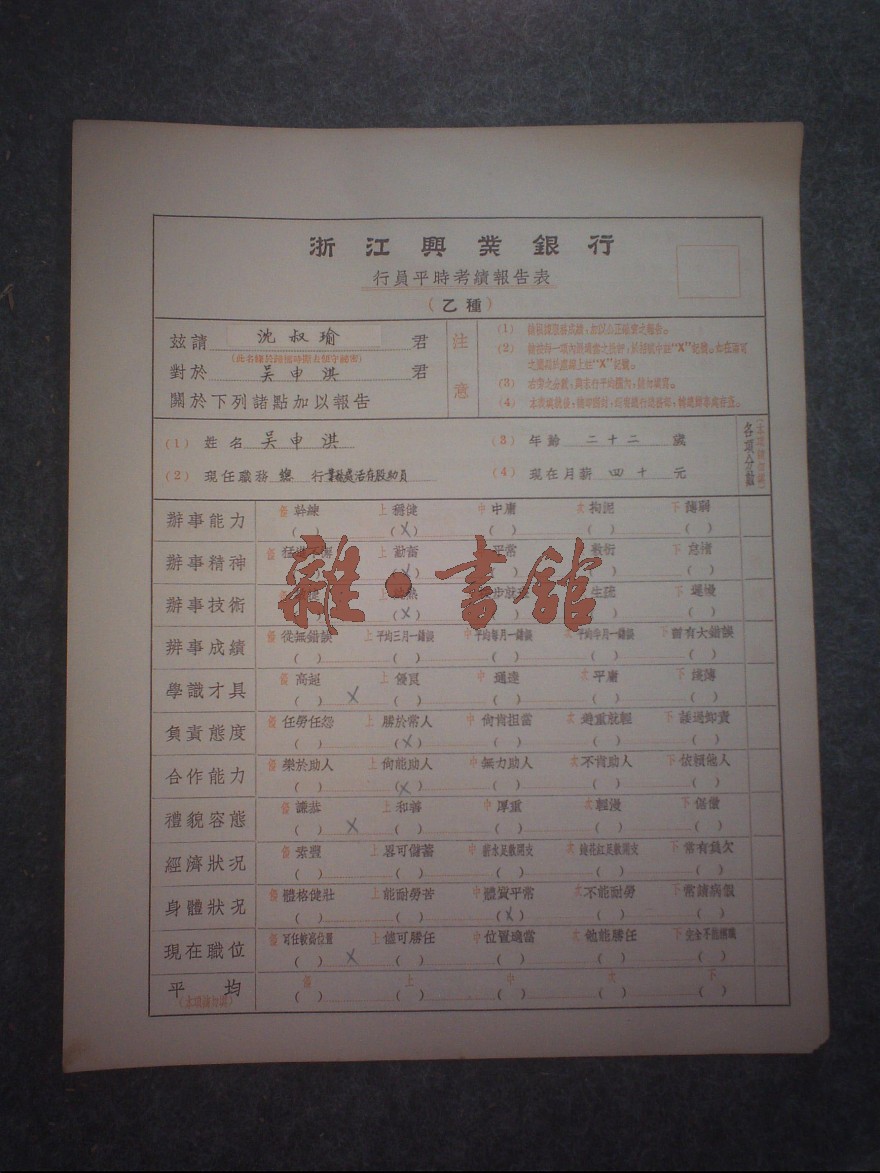 浙江興業銀行
行員平時考績報告表
(乙種)
茲請 沈叔瑜 君
(此名條長到無時間去留守秘密)
對於 吴申淇 君
關於下列諸點加以報告
注意
(1) 姓名 吴申淇
(3) 年齡 二十二 歲
(2) 現任職務 總 行業務處活存股助員
(4) 現在月薪 四十 元
各項分數
(本項請勿填)
辦事能力 優 幹練 上 穩健 中 中庸 次 拘泥 下 薄弱
( ) (X) ( ) ( ) ( )
辦事精神 優 上 勤奮 平常 敷衍 下 怠惰
辦事技術 生疏 遲慢
(X) ( ) ( ) ( )
辦事成績 優 從無錯誤 上 平均三月一錯誤 中 平均每月一錯誤 次 平均半月一錯誤 下 時有大錯誤
( ) ( ) ( ) ( ) ( )
學識才具 優 高超 上 優良 中 通達 次 平庸 下 淺薄
( ) X ( ) ( ) ( ) ( )
負責態度 優 任勞任怨 上 勝於常人 中 尚肯担當 次 避重就輕 下 諉過卸責
( ) (X) ( ) ( ) ( )
合作能力 優 樂於助人 上 尚能助人 中 無力助人 次 不肯助人 下 依賴他人
( ) (X) ( ) ( ) ( )
禮貌容態 優 謙恭 上 和善 中 厚重 次 輕慢 下 倨傲
( ) X ( ) ( ) ( ) ( )
經濟狀況 優 素豐 上 畧可儲蓄 中 薪水足敷開支 次 連花紅足敷開支 下 常有虧欠
( ) ( ) ( ) ( ) ( )
身體狀況 優 體格健壯 上 能耐勞苦 中 體質平常 次 不能耐勞 下 常請病假
( ) ( ) (X) ( ) ( )
現在職位 優 可任較高位置 上 儘可勝任 中 位置適當 次 勉能勝任 下 完全不能稱職
( ) X ( ) ( ) ( ) ( )
平均 優 上 中 次 下
(本項請勿填) ( ) ( ) ( ) ( ) ( )
雜·書館